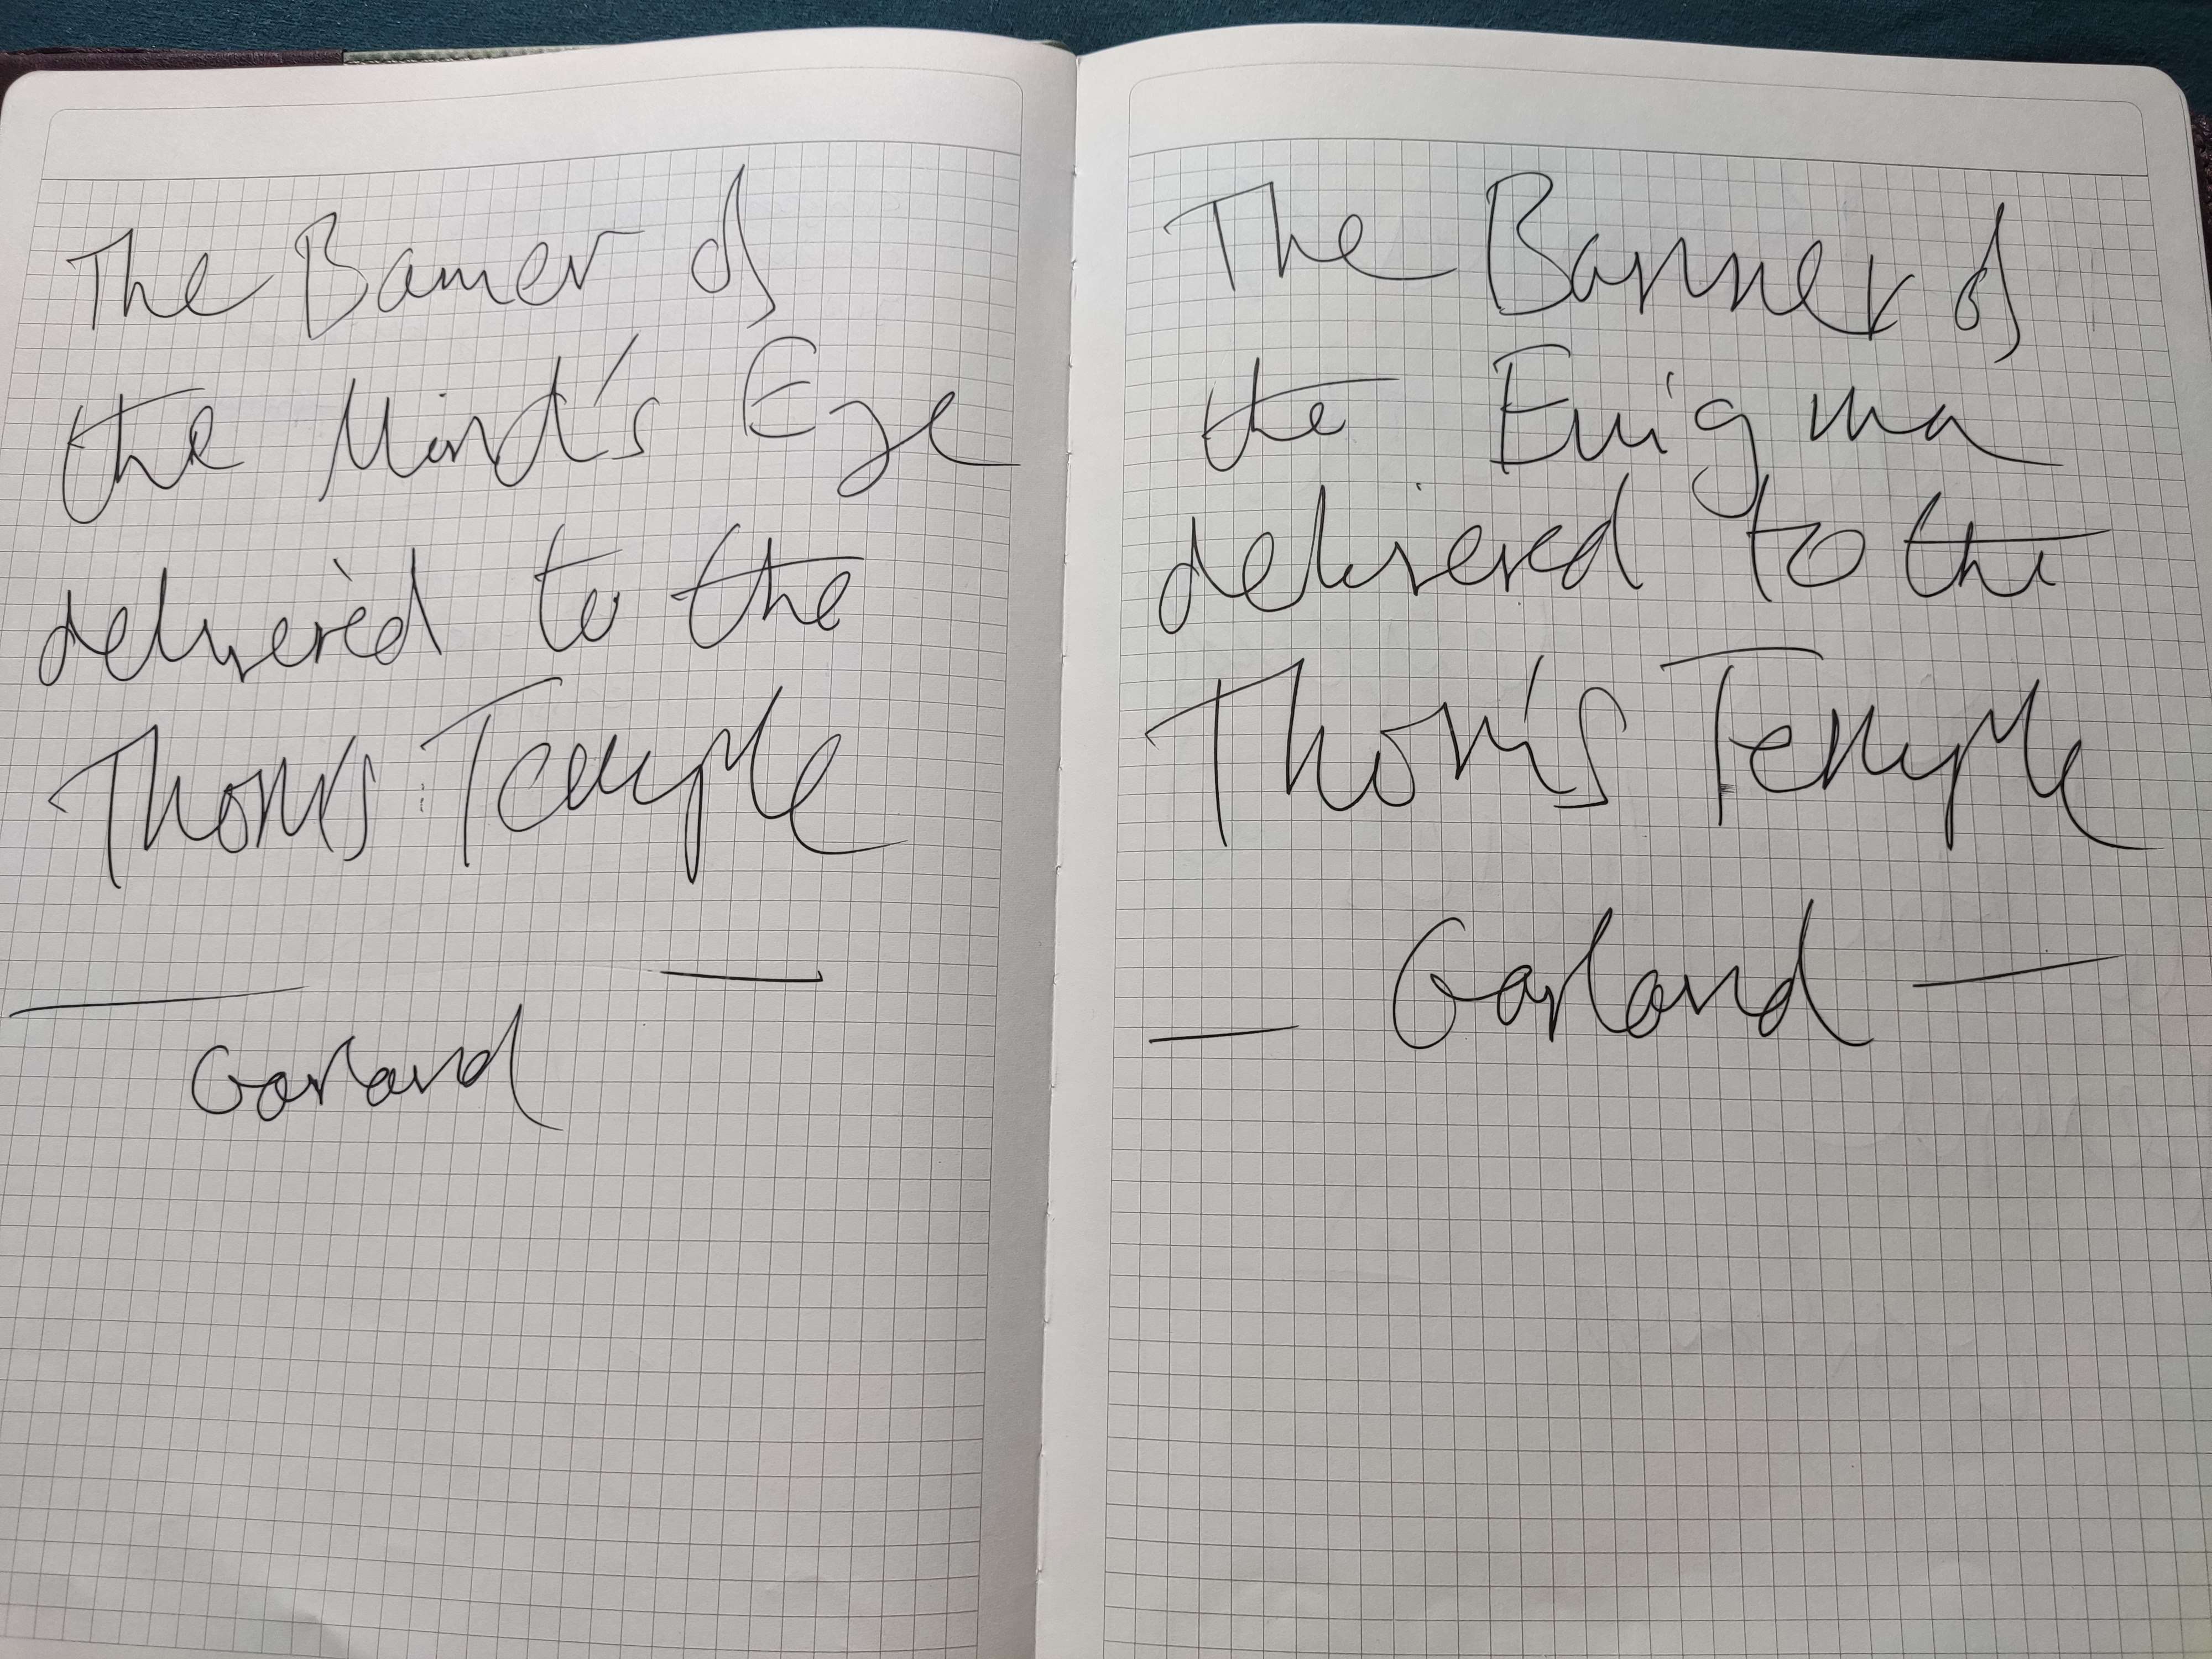 The Banner of
the Mind's Eye
delivered to the
Thom's Temple
Garland
The Banner of
the Enigma
delivered to the
Thom's Temple
— Garland —